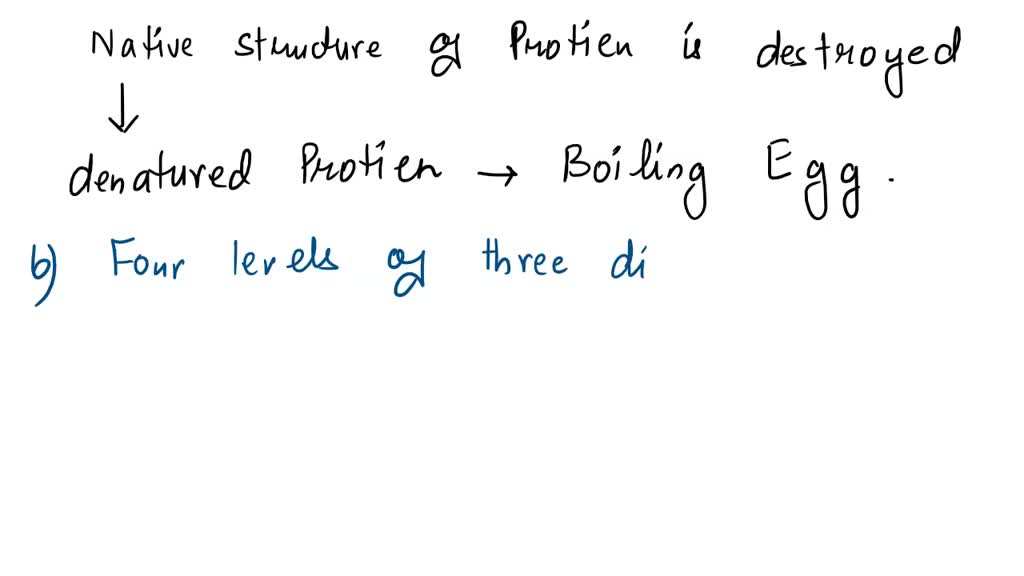 Native structure of Protien is destroyed
↓
denatured Protien → Boiling Egg.
b) Four levels of three di